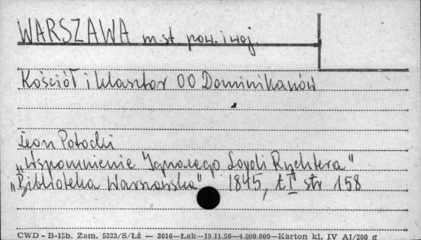 WARSZAWA m st. pow. i woj.
Kościół i klasztor OO Dominikanów
Leon Potocki
„Wspomnienie Ignacego Loyoli Rychtera"
„Biblioteka Warszawska" 1845, t. I str 158
CWD - B-15b. Zam. 5323/S/Łż — 3016—Łak—15.11.56—4.000.000—Karton kl. IV A1/200 g